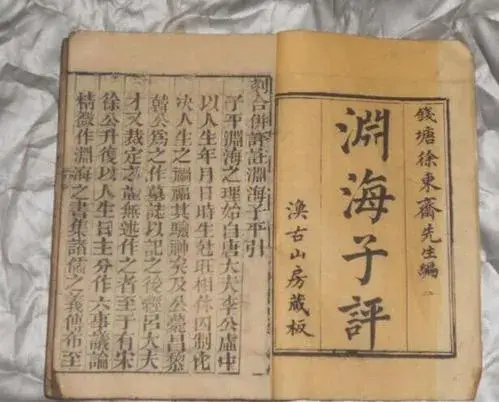 錢塘徐東齋先生編
淵海子評
古山房藏板
刻合併評註淵海子平引
子平淵海之理始自唐大夫李公虛中
以人生年月日時生尅旺相休囚制化
决人生之禍福其驗神矣及公薨昌黎
韓公爲之作墓誌以記之後經呂大夫
才又裁定之並無述作之者至于有宋
徐公升復以人生日主分作六事議論
精微作淵海之書集諸儒之義傳布至